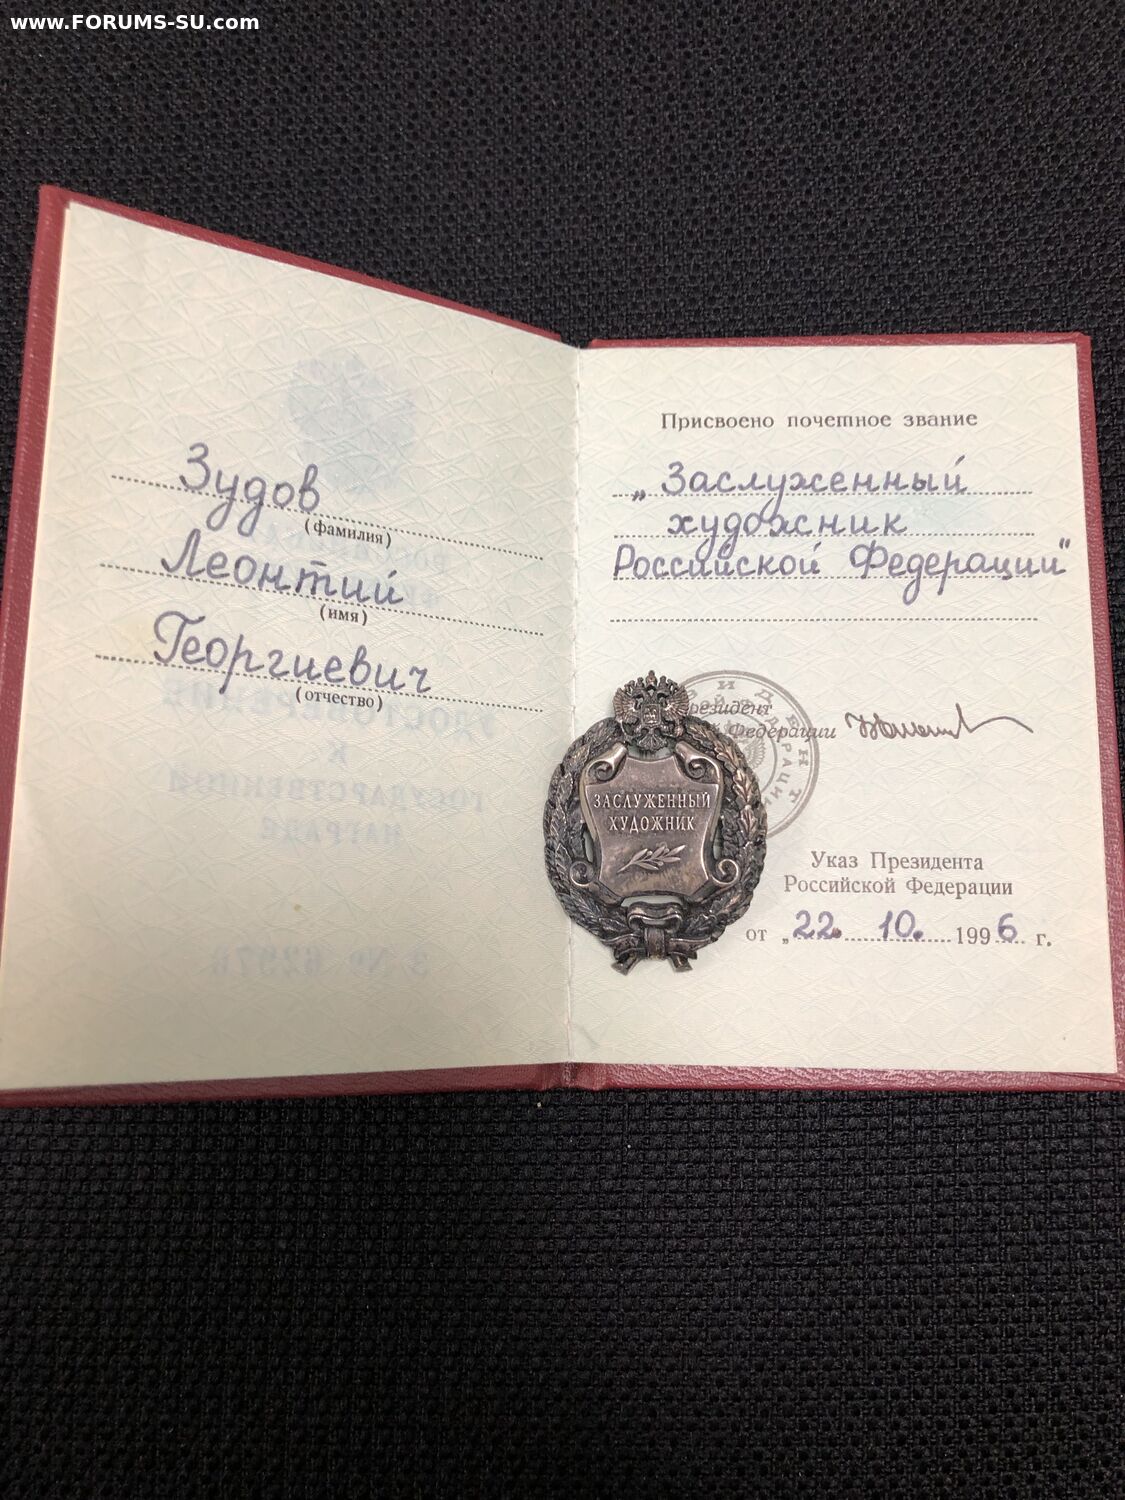 www.FORUMS-SU.com
Зудов
(фамилия)
Леонтий
(имя)
Георгиевич
(отчество)
Присвоено почетное звание
„Заслуженный
художник
Российской Федерации"
Президент
Федерации
ЗАСЛУЖЕННЫЙ
ХУДОЖНИК
Указ Президента
Российской Федерации
от „22. 10. 1996 г.